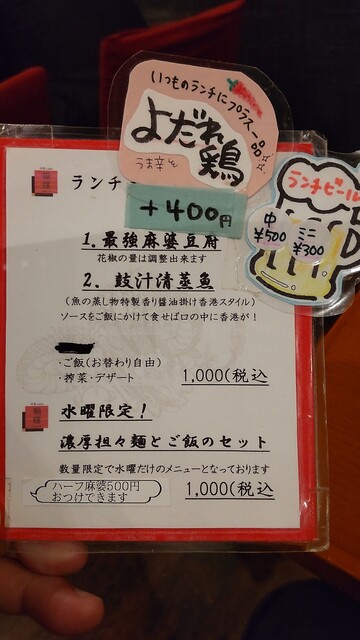 いつものランチにプラス一品
よだれ鶏
うま辛
+400円
ランチビール
中 ミニ
¥500 ¥300
ランチ
1.最強麻婆豆府
花椒の量は調整出来ます
2.豉汁清蒸魚
(魚の蒸し物特製香り醤油掛け香港スタイル)
ソースをご飯にかけて食せば口の中に香港が!
・ご飯(お替わり自由)
・搾菜・デザート 1,000(税込
水曜限定!
濃厚担々麺とご飯のセット
数量限定で水曜だけのメニューとなっております
ハーフ麻婆500円
おつけできます
1,000(税込